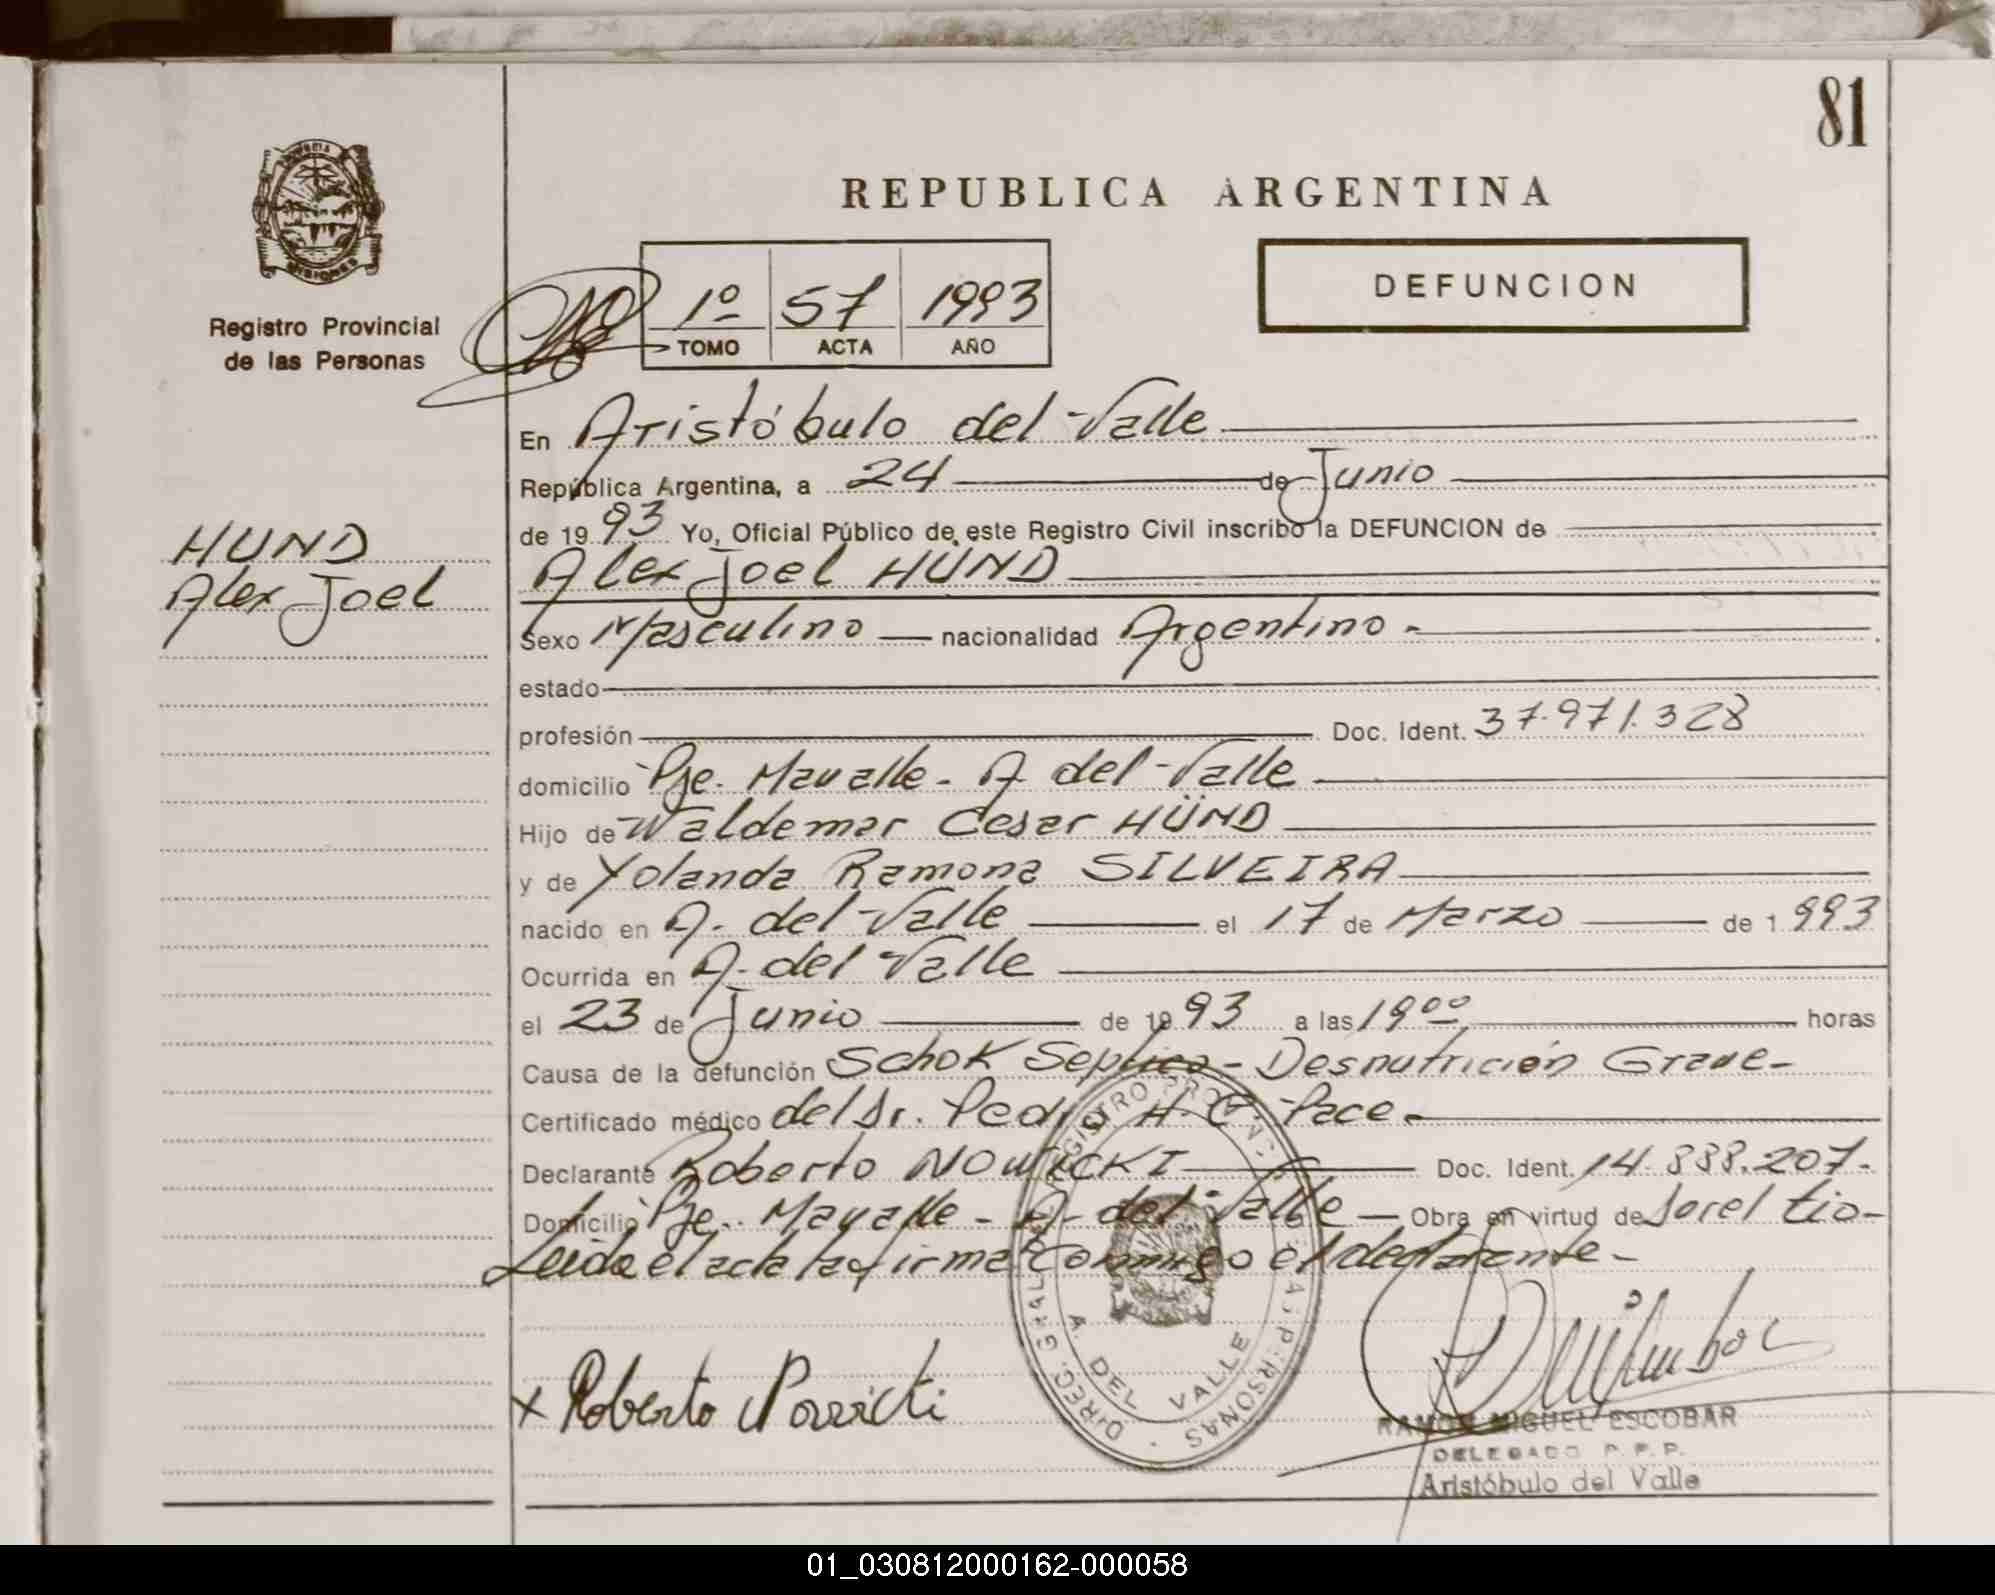 81
REPUBLICA ARGENTINA
DEFUNCION
MISIONES
Registro Provincial
de las Personas
1º 57 1993
TOMO ACTA AÑO
HUND
Alex Joel
En Aristóbulo del Valle
República Argentina, a 24 de Junio
de 1993 Yo, Oficial Público de este Registro Civil inscribo la DEFUNCION de
Alex Joel HÜND
Sexo Masculino nacionalidad Argentino.-
estado
profesión Doc. Ident. 37.971.328
domicilio Pje. Mavalle - A. del Valle
Hijo de Waldemar Cesar HÜND
y de Yolanda Ramona SILVEIRA
nacido en A. del Valle el 17 de Marzo de 1993
Ocurrida en A. del Valle
el 23 de Junio de 1993 a las 19ºº horas
Causa de la defunción Schok Septico - Desnutrición Grave-
Certificado médico del Dr. Pedro H. C. Pace.-
Declarante Roberto NOWICKI Doc. Ident. 14.888.207.-
Domicilio Pje. Mavalle - A. del Valle - Obra en virtud de Ser el tio-
Leida el acta la firma conmigo el declarante-
DIREC. GRAL. DEL REGISTRO PROVINCIAL DE LAS PERSONAS
A. DEL VALLE
x Roberto Nowicki
RAMON MIGUEL ESCOBAR
DELEGADO R.P.P.
Aristóbulo del Valle
01_030812000162-000058